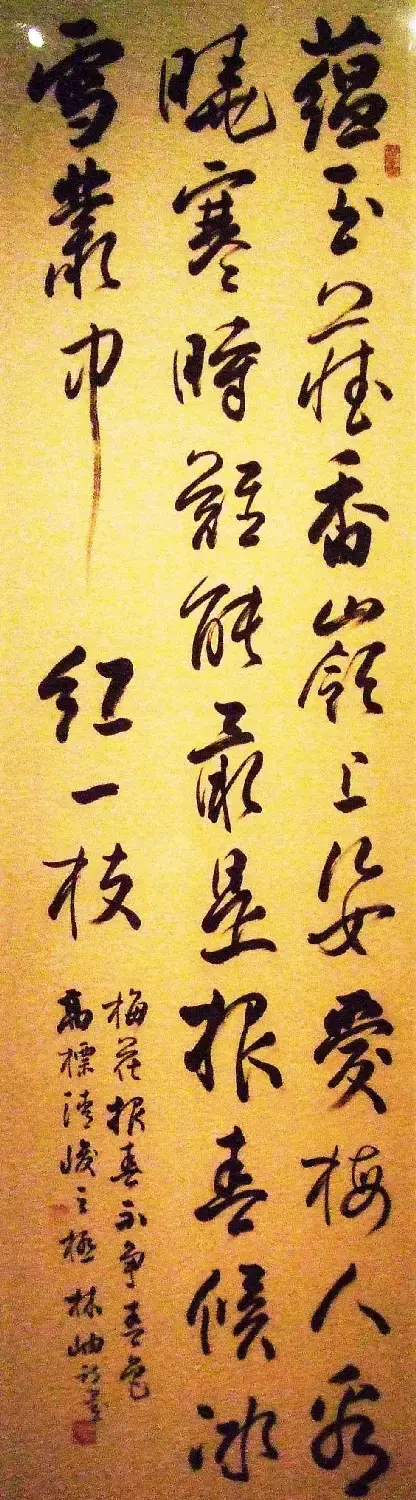 蘊玉藏香嶺上姿愛梅人看
曉寒時難能最是報春候冰
雪叢中紅一枝
梅花報春不争春色
高標清峻之極林岫詩書